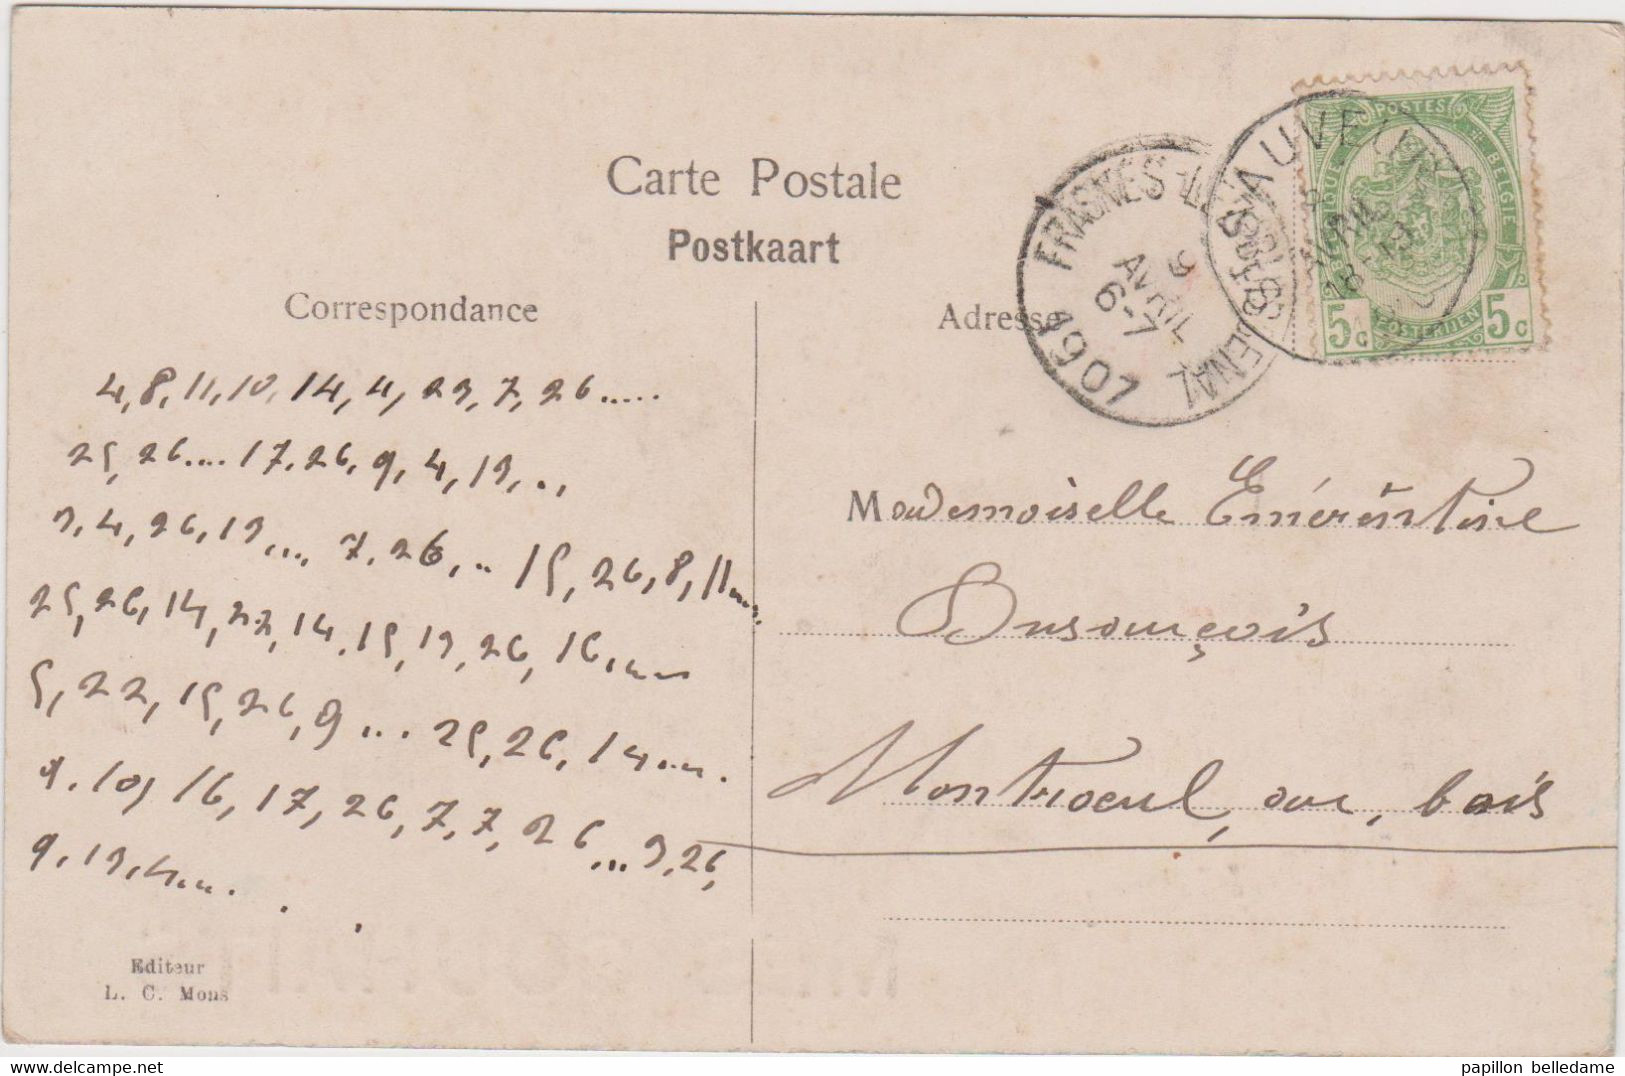 Carte Postale
Postkaart
Correspondance
4,8,11,10,14,4,23,7,26.....
25,26....17,26,9,4,19,..,
3,4,26,19... 7,26,.. 15,26,8,11....
25,26,14,22,14,15,19,26,16,....
5,22,15,26,9... 25,26,14....
9,10,16,17,26,7,7,26...3,26,
9,19,4....
Editeur
L. C. Mons
Adresse
FRASNES-LEZ-BUISSENAL
9
AVRIL
6-7
1907
AVRIL
18-19
POSTES
BELGIQUE BELGIE
5c POSTERIJEN 5c
Mademoiselle Emérentine
Montroeul, au, bois
papillon belledame
www.delcampe.net